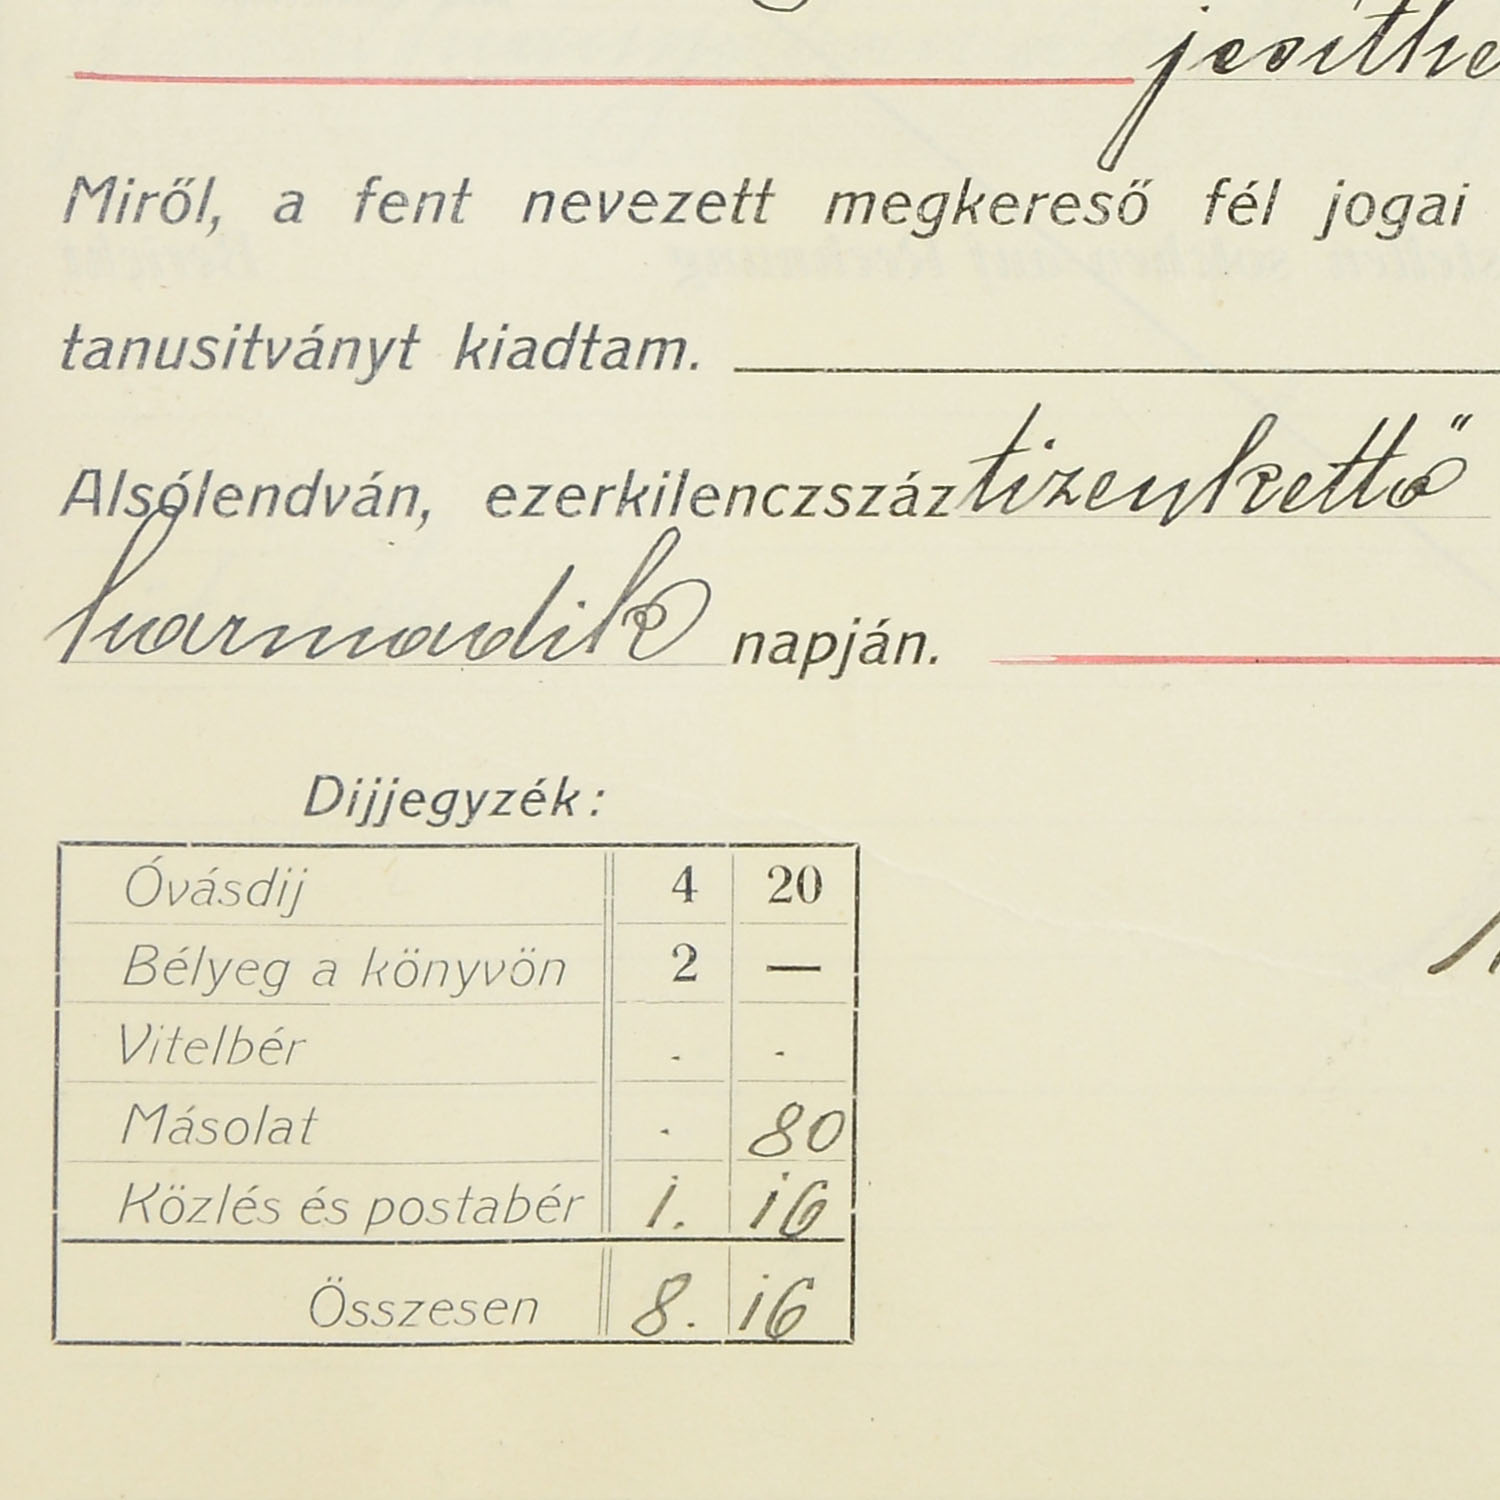 jesithe
Miről, a fent nevezett megkereső fél jogai
tanusitványt kiadtam.
Alsólendván, ezerkilenczszáz tizenkettő
harmadik napján.
Dijjegyzék:
Óvásdij 4 20
Bélyeg a könyvön 2 —
Vitelbér . .
Másolat . 80
Közlés és postabér 1. 16
Összesen 8. 16